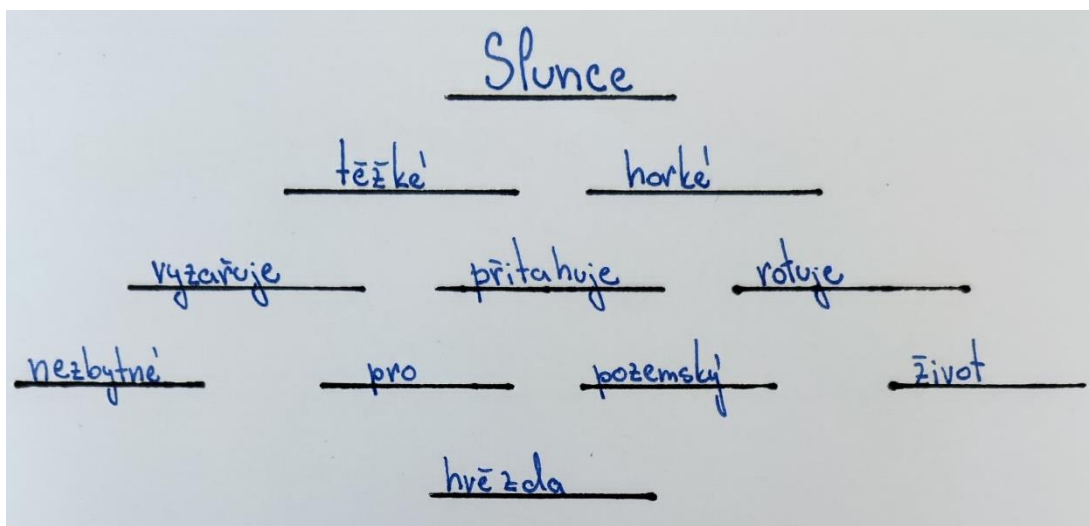 Slunce
těžké horké
vyzařuje přitahuje rotuje
nezbytné pro pozemský život
hvězda